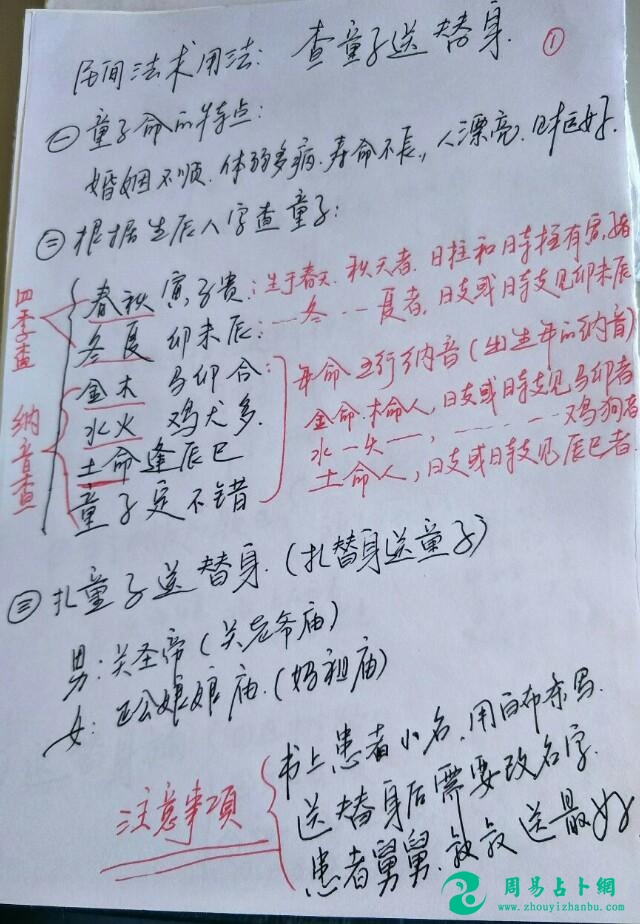 民间法术用法: 查童子送替身. ①
㊀ 童子命的特点:
婚姻不顺. 体弱多病. 寿命不长, 人漂亮.
㊁ 根据生辰八字查童子:
四季查
春秋 寅子贵: 生于春天. 秋天者. 日柱和时柱有寅,子者
冬夏 卯未辰: --- 冬 --- 夏者, 日支或日时支见卯未辰
纳音查
金木 马卯合: 年命五行纳音(出生年的纳音)
水火 鸡犬多. 金命. 木命人, 日支或日时支见马卯者
土命逢辰巳 水 一火一, ------- 鸡狗者
童子定不错 土命人, 日支或日时支见辰巳者.
㊂ 扎童子送替身. (扎替身送童子)
男: 关圣帝 (关老爷庙)
女: 娘娘庙. (妈祖庙)
注意事項
书上患者小名. 用白布
送替身后需要改名字.
患者舅舅. 叔叔 送最好
周易占卜網
www.zhouyizhanbu.com